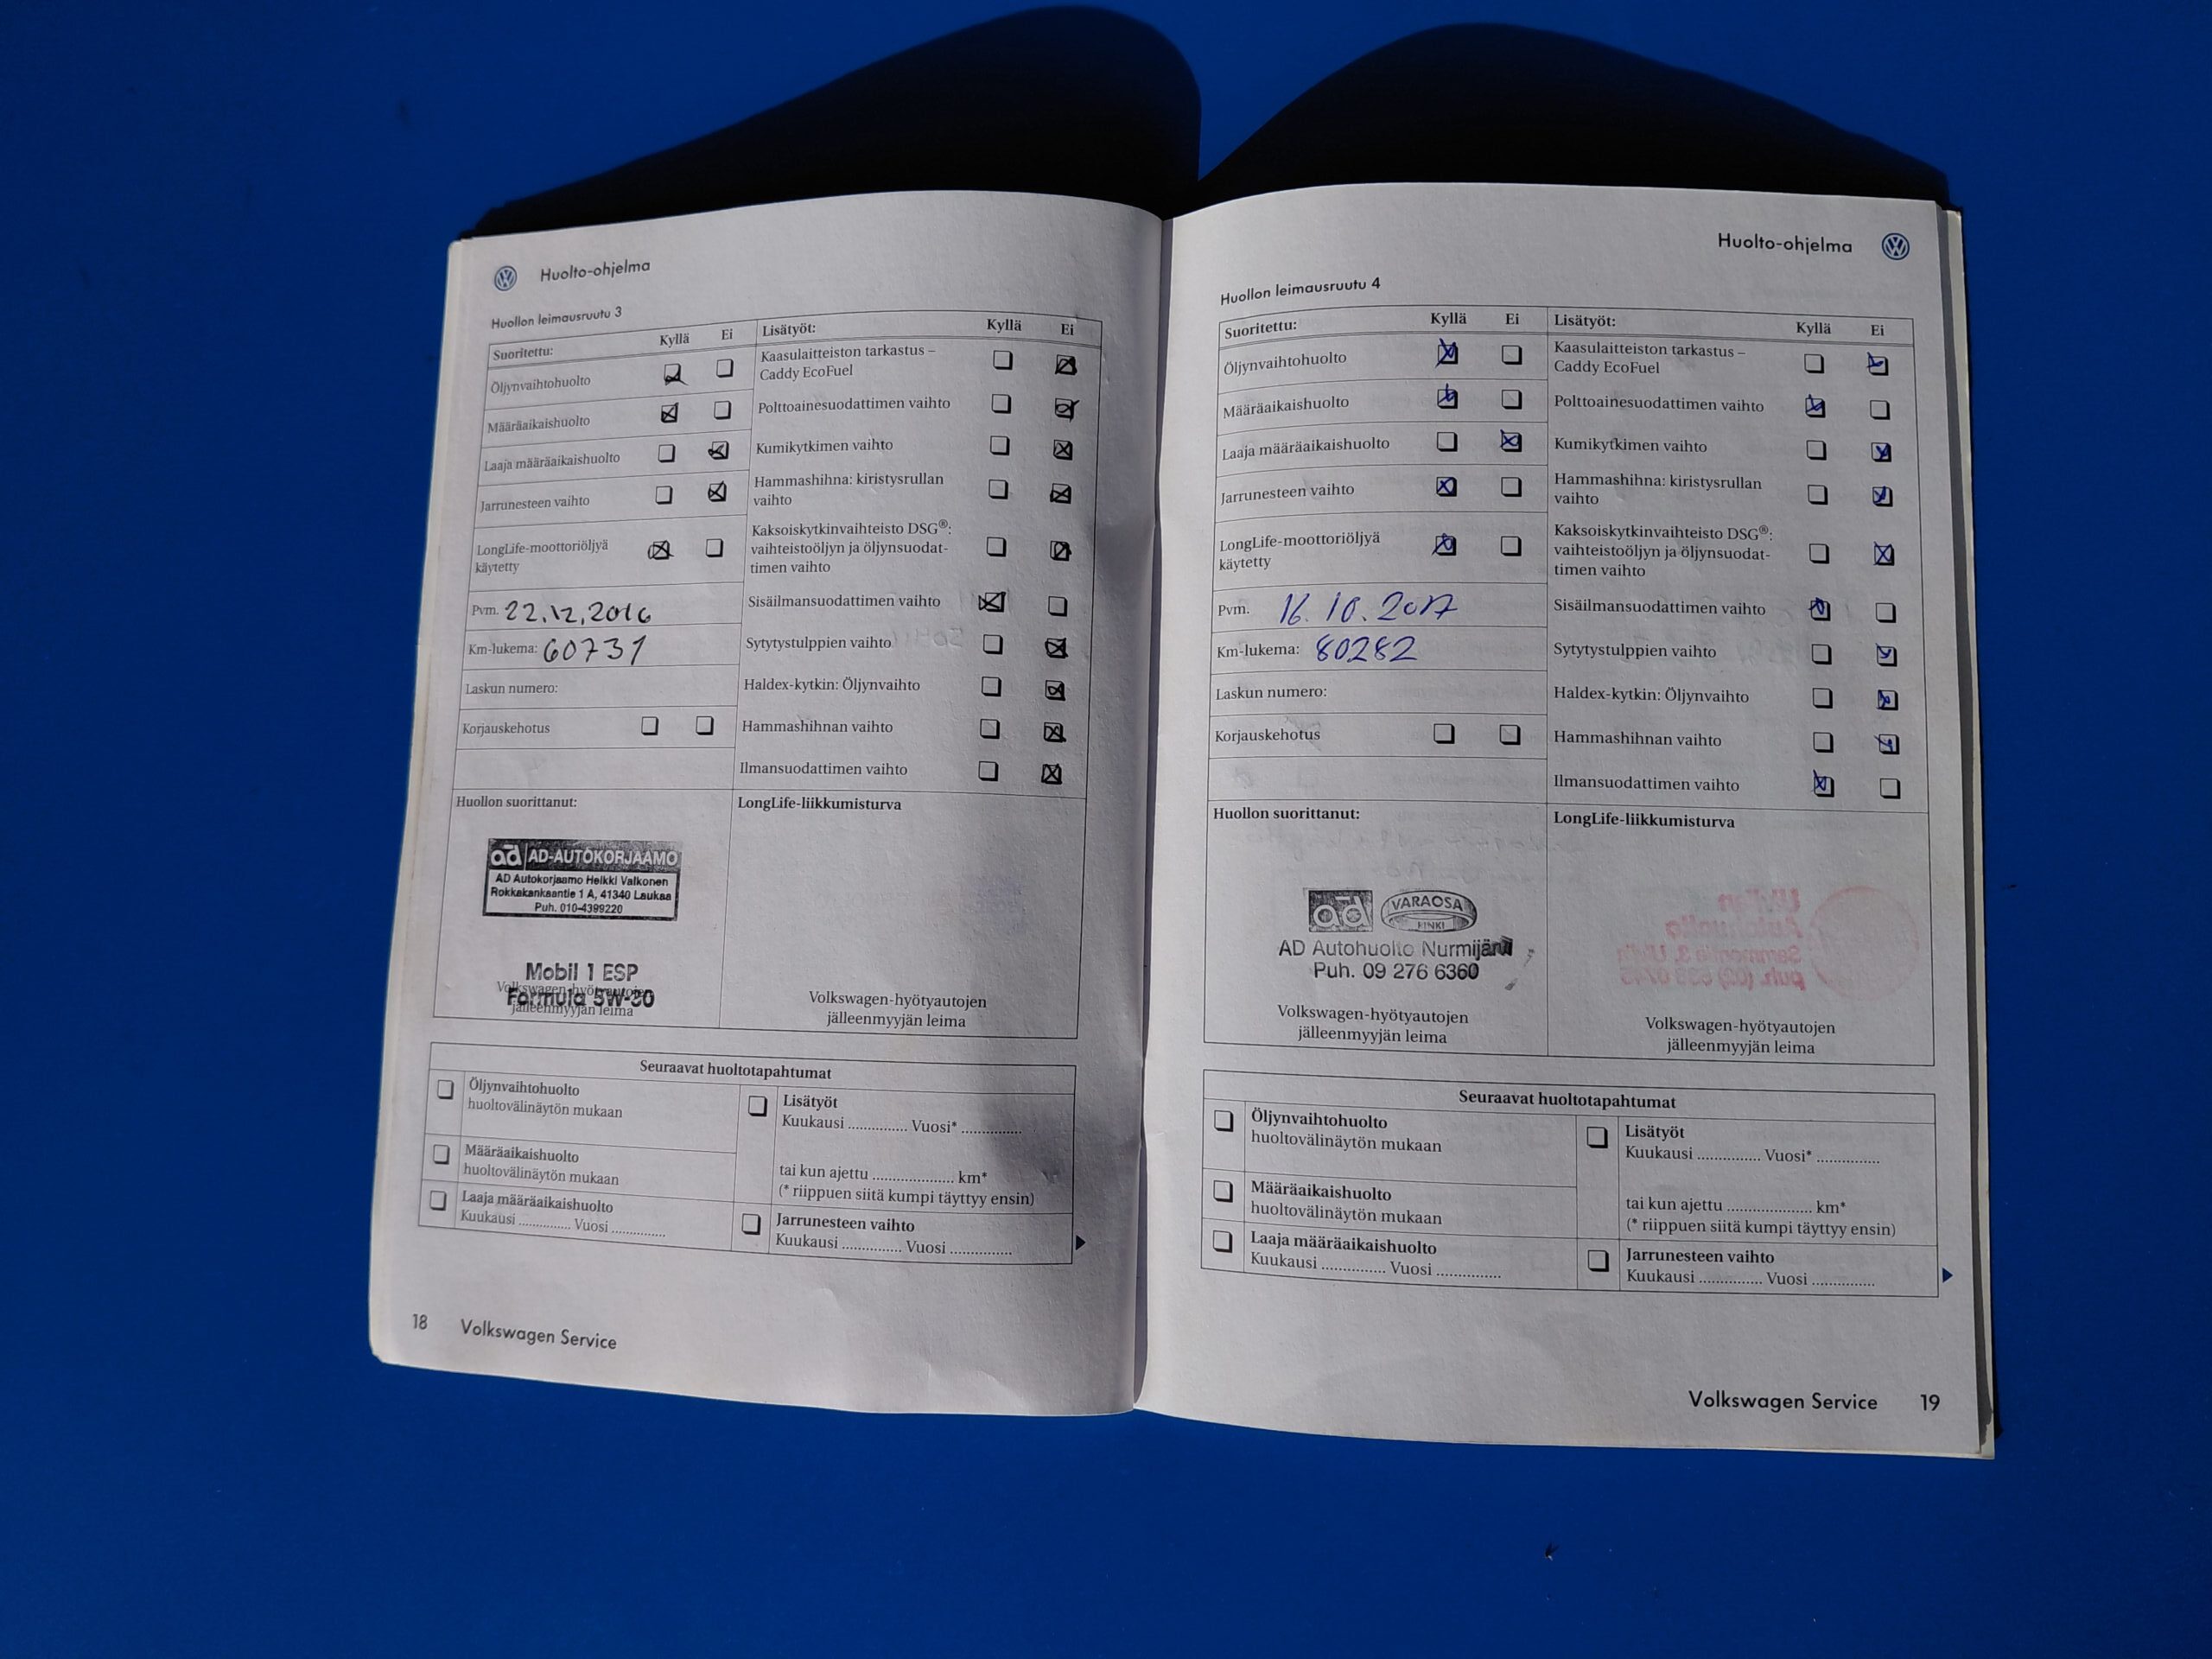 Huolto-ohjelma
Huollon leimausruutu 3
Suoritettu: Kyllä Ei
Öljynvaihtohuolto
Määräaikaishuolto
Laaja määräaikaishuolto
Jarrunesteen vaihto
LongLife-moottoriöljyä
käytetty
Pvm. 22.12.2016
Km-lukema: 60731
Laskun numero:
Korjauskehotus
Lisätyöt: Kyllä Ei
Kaasulaitteiston tarkastus –
Caddy EcoFuel
Polttoainesuodattimen vaihto
Kumikytkimen vaihto
Hammashihna: kiristysrullan
vaihto
Kaksoiskytkinvaihteisto DSG®:
vaihteistoöljyn ja öljynsuodat-
timen vaihto
Sisäilmansuodattimen vaihto
Sytytystulppien vaihto
Haldex-kytkin: Öljynvaihto
Hammashihnan vaihto
Ilmansuodattimen vaihto
Huollon suorittanut:
ad AD-AUTOKORJAAMO
AD Autokorjaamo Heikki Valkonen
Rokkakankaantie 1 A, 41340 Laukaa
Puh. 010-4399220
Mobil 1 ESP
Formula 5W-30
Volkswagen-hyötyautojen
jälleenmyyjän leima
LongLife-liikkumisturva
Volkswagen-hyötyautojen
jälleenmyyjän leima
Seuraavat huoltotapahtumat
Öljynvaihtohuolto
huoltovälinäytön mukaan
Määräaikaishuolto
huoltovälinäytön mukaan
Laaja määräaikaishuolto
Kuukausi .............. Vuosi ..............
Lisätyöt
Kuukausi ............... Vuosi* ...............
tai kun ajettu .................... km*
(* riippuen siitä kumpi täyttyy ensin)
Jarrunesteen vaihto
Kuukausi ............... Vuosi ...............
18 Volkswagen Service
Huolto-ohjelma
Huollon leimausruutu 4
Suoritettu: Kyllä Ei
Öljynvaihtohuolto
Määräaikaishuolto
Laaja määräaikaishuolto
Jarrunesteen vaihto
LongLife-moottoriöljyä
käytetty
Pvm. 16.10.2017
Km-lukema: 80282
Laskun numero:
Korjauskehotus
Lisätyöt: Kyllä Ei
Kaasulaitteiston tarkastus –
Caddy EcoFuel
Polttoainesuodattimen vaihto
Kumikytkimen vaihto
Hammashihna: kiristysrullan
vaihto
Kaksoiskytkinvaihteisto DSG®:
vaihteistoöljyn ja öljynsuodat-
timen vaihto
Sisäilmansuodattimen vaihto
Sytytystulppien vaihto
Haldex-kytkin: Öljynvaihto
Hammashihnan vaihto
Ilmansuodattimen vaihto
Huollon suorittanut:
ad VARAOSA
RINKI
AD Autohuolto Nurmijärvi
Puh. 09 276 6360
Volkswagen-hyötyautojen
jälleenmyyjän leima
LongLife-liikkumisturva
Volkswagen-hyötyautojen
jälleenmyyjän leima
Seuraavat huoltotapahtumat
Öljynvaihtohuolto
huoltovälinäytön mukaan
Määräaikaishuolto
huoltovälinäytön mukaan
Laaja määräaikaishuolto
Kuukausi ................ Vuosi ................
Lisätyöt
Kuukausi ................ Vuosi* ................
tai kun ajettu ..................... km*
(* riippuen siitä kumpi täyttyy ensin)
Jarrunesteen vaihto
Kuukausi ................ Vuosi ................
Volkswagen Service 19